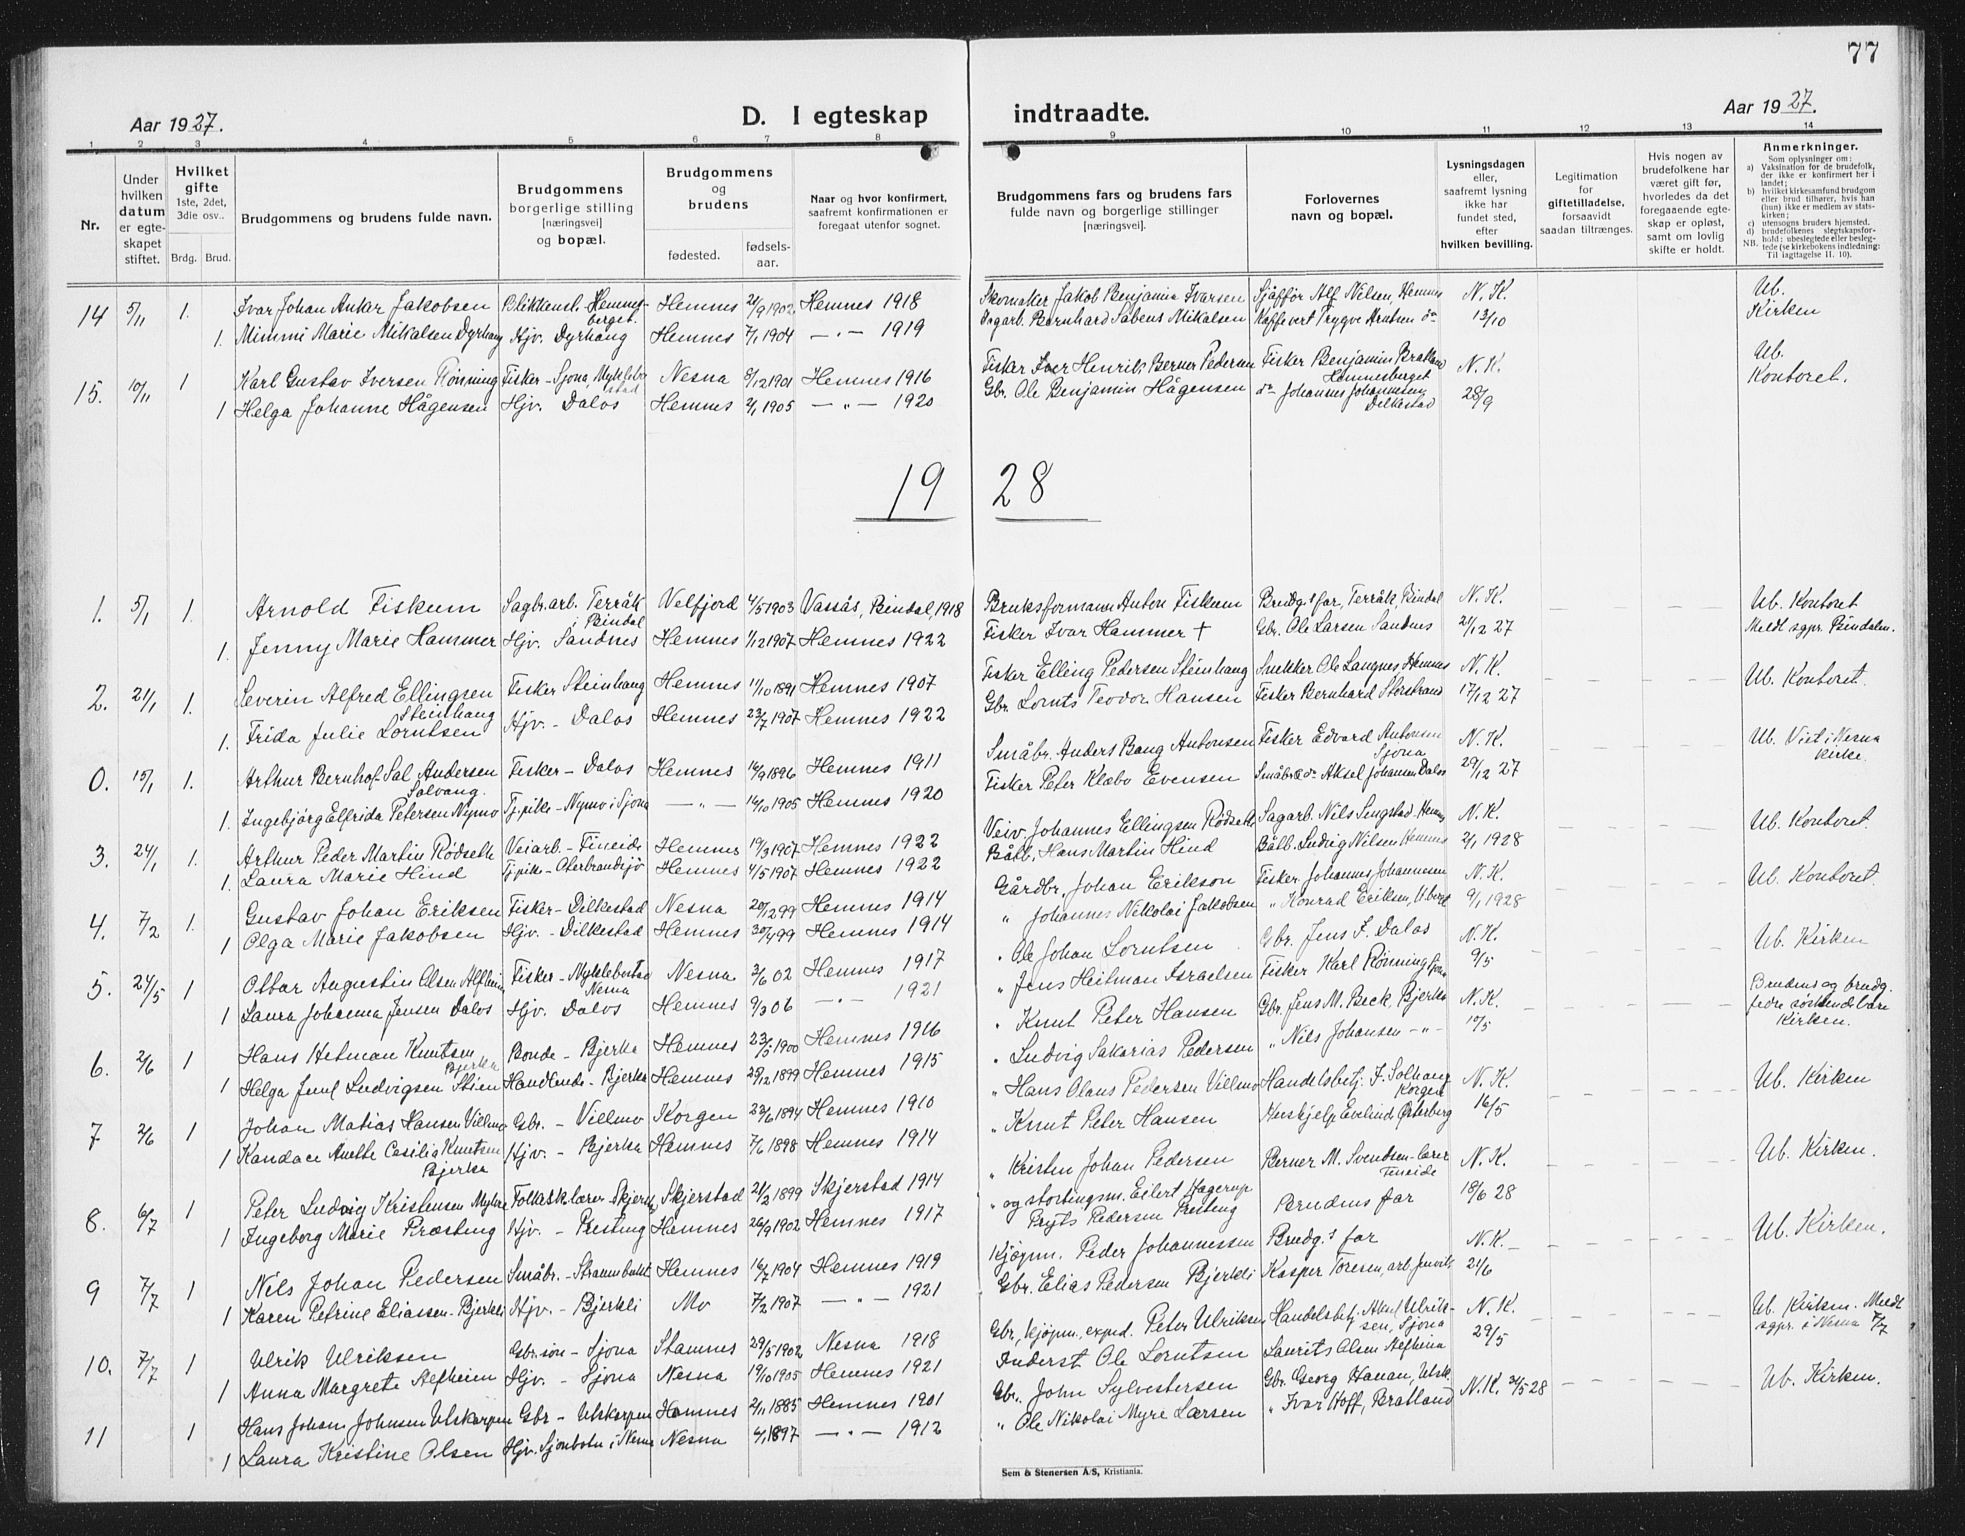 77
Aar 1927.
D. I egteskap
indtraadte.
Aar 1927.
1 2 3 4 5 6 7 8 9 10 11 12 13 14
Nr.
Under hvilken datum er egteskapet stiftet.
Hvilket gifte 1ste, 2det, 3die osv..
Brdg. Brud.
Brudgommens og brudens fulde navn.
Brudgommens borgerlige stilling [næringsvei] og bopæl.
Brudgommens og brudens
fødested.
fødsels-aar.
Naar og hvor konfirmert, saafremt konfirmationen er foregaat utenfor sognet.
Brudgommens fars og brudens fars fulde navn og borgerlige stillinger [næringsvei].
Forlovernes navn og bopæl.
Lysningsdagen eller, saafremt lysning ikke har fundet sted, efter hvilken bevilling.
Legitimation for giftetilladelse, forsaavidt saadan tiltrænges.
Hvis nogen av brudefolkene har været gift før, hvorledes da det foregaaende egteskap er opløst, samt om lovlig skifte er holdt.
Anmerkninger.
Som oplysninger om:
a) Vaksination for de brudefolk, der ikke er konfirmert her i landet;
b) hvilket kirkesamfund brudgom eller brud tilhører, hvis han (hun) ikke er medlem av statskirken;
c) utensogns bruders hjemsted.
d) brudefolkenes slegtskapsforhold: ubeslegtede eller beslegtede (se kirkebokens indledning: Til iagttagelse II. 10).
NB.
14 5/11 1. Ivar Johan Anker Jakobsen Blikkensl. Hemnesberget. Hemnes 21/9 1902 Hemnes 1918 Skomaker Jakob Benjamin Ivarsen Sjåffør Alf Nilsen, Hemnes N.K. 13/10 Ub. Kirken
1. Mimmi Marie Mikalsen Dyrhaug Hjv. Dyrhaug Hemnes 7/1 1904 — " — 1919 Bernhard Mikalsen Kaffevert Trygve do
15. 10/11 1 Karl Gustav Iversen Rønning Fisker - Sjona, Myklebostad Nesna 8/12 1901 Hemnes 1916 Fisker Iver Henrik Berner Pedersen Fisker Benjamin Bratland Hemnesberget N.K. 28/9 Ub. Kontoret.
1 Helga Johanne Hågensen Hjv. Dalos Hemnes 2/1 1905 — " — 1920 Gbr. Ole Benjamin Hågensen do Johannes Johannesen Dilkestad
19 28
1. 5/1 1. Arnold Fiskum Sagbr.arb. Terråk i Bindal Velfjord 4/5 1903 Vassås, Bindal, 1918 Bruksformann Anton Fiskum Brudg.s far, Terråk, Bindal N.K. 21/12 27 Ub. Kontoret Meldt sgpr. Bindalen.
1. Jenny Marie Hammer Hjv. Sandnes Hemnes 1/12 1907 Hemnes 1922 Fisker Ivar Hammer † Gbr. Ole Larsen Sandnes
2. 21/1 1. Severin Alfred Ellingsen Steinhaug Fisker Steinhaug Hemnes 11/10 1891 Hemnes 1907 Fisker Elling Pedersen Steinhaug Snekker Ole Langnes Hemnes N.K. 17/12 27 Ub. Kontoret.
1. Frida Julie Lorntsen Hjv. - Dalos Hemnes 23/7 1907 Hemnes 1922 Gbr. Lornts Teodor Hansen Fisker Bernhard Storstrand
0. 15/1 1. Arthur Bernhof Sal. Andersen Solvang. Fisker - Dalos Hemnes 14/9 1896 Hemnes 1911 Småbr. Anders Bang Antonsen Fisker Edvard Antonsen Sjona N.K. 29/12 27 Ub. Viet i Nesna kirke.
1. Ingebjørg Elfrida Petersen Nymo Tj.pike - Nymo i Sjona — " — 14/10 1905 Hemnes 1920 Fisker Peter Klæbo Evensen Småbr. Aksel Johansen Dalos
3. 24/1 1. Arthur Peder Martin Rødseth Veiarb - Fineide Hemnes 19/3 1907 Hemnes 1922 Veiv. Johannes Ellingsen Rødseth Sagarb. Nils Hemnes N.K. 2/1 1928 Ub. Kontoret.
1. Laura Marie Hind Tj.pike - Oterbrandsjø Hemnes 4/5 1907 Hemnes 1922 Båtb. Hans Martin Hind Båtb. Ludvig Nilsen Hemnes
4. 7/2 1. Gustav Johan Eriksen Fisker - Dilkestad Nesna 20/12 99 Hemnes 1914 Gårdbr. Johan Erikson Fisker Johannes Johannesen N.K. 9/1 1928 Ub. Kontoret.
1 Olga Marie Jakobsen Hjv. - Dilkestad Hemnes 30/4 99 Hemnes 1914 " Johannes Nikolai Jakobsen " Konrad Eriksen,
5. 24/5 1 Ottar Augustin Olsen Alfheim Fisker - Myklebostad Nesna Nesna 3/6 02 Hemnes 1917 " Ole Johan Lorntsen Gbr. Jens F. Dalos N.K. 9/5 Ub. Kirken
1 Laura Johanna Jensen Dalos Hjv. Dalos Hemnes 9/3 06 — " — 1921 " Jens Heitman Israelsen Fisker Karl Rønning Sjona
6. 2/6 1 Hans Hetman Knutsen Bjerka Bonde - Bjerka Hemnes 23/5 1900 Hemnes 1916 " Knut Peter Hansen Gbr. Jens M. Beck, Bjerka N.K. 10/5 Brudens og brudg. fedre søskendebarn Kirken.
1 Helga Juul Ludvigsen Stien Handlende - Bjerka Hemnes 28/12 1899 Hemnes 1915 " Ludvig Sakarias Pedersen " Nils Johansen — " —
7 2/6 1 Johan Matias Hansen Villmo Gbr. - Villmo Korgen 23/6 1894 Hemnes 1910 " Hans Olaus Pedersen Villmo Handelsbetj. F. Solhaug Korgen N.K. 16/5 Ub. Kirken
1 Kandace Anette Cecilia Knutsen Bjerka Hjv. - Bjerka Hemnes 7/6 1898 Hemnes 1914 " Knut Peter Hansen Evelind Østerberg
8. 6/7 1 Peter Ludvig Kristensen Myhre Folkesk.lærer Skjerst. Skjerstad 21/2 1899 Skjerstad 1914 " Kristen Johan Pedersen Berner M. Svendsen - lærer Fineide N.K. 18/6 28 Ub. Kirken.
1 Ingeborg Marie Præsteng Hjv. - Presteng Hemnes 26/9 1902 Hemnes 1917 " og stortingsm. Eilert Hagerup Pryts Pedersen Presteng Brudens far
9 7/7 1 Nils Johan Pedersen Småbr. - Straumbukt Hemnes 16/7 1904 Hemnes 1919 Kjøpm. Peder Johannessen Brudg.s far N.K. 21/6 Ub. Kirken.
1 Karen Petrine Eliassen - Bjerkli Hjv. - Bjerkli Mo 7/2 1907 — " — 1921 Gbr. Elias Pedersen Bjerkli Kasper Toresen, arb.
10. 7/7 1 Ulrik Ulriksen Gbr.søn - Sjona Stamnes 29/5 1902 Nesna 1918 Gbr., kjøpm., exped. Peter Ulriksen Handelsbetj. Aksel Ulriksen, Sjona N.K. 29/5 Ub. Kirken. Meldt sgpr. i Nesna 7/7
1 Anna Margrete Alfheim Hjv. - Sjona Nesna 19/10 1905 Hemnes 1921 Inderst Ole Lorntsen Laurits Olsen Alfheim
11 1 Hans Johan Johnsen Ulskarpen Gbr - Ulskarpen Hemnes 2/11 1885 Hemnes 1901 Gbr. John Sylvestersen Gbr. Georg Hanan, Ulsk. N.K. 31/5 28 Ub. Kirken.
1 Laura Kristine Olsen Hjv. Sjonbotn i Nesna Nesna 4/1 1897 — " — 1912 " Ole Nikolai Myre Larsen " Ivar Hoff, Bratland
Sem & Stenersen A/S, Kristiania.